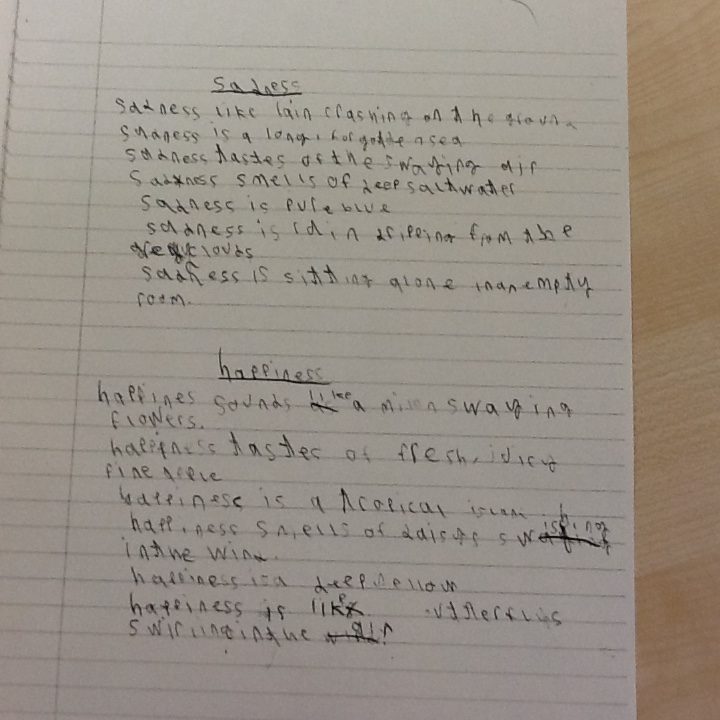 sadness
sadness like rain crashing on the ground
sadness is a long, forgotten sea
sadness tastes of the swaying air
sadness smells of deep saltwater
sadness is pure blue
sadness is rain dripping from the
grey clouds
sadness is sitting alone in an empty
room.
happiness
happines sounds like a swaying
flowers.
happiness tastes of fresh, juicy
pine apple
happiness is a tropical
happiness smells of swishing
in the wind.
happiness is a deep yellow
happiness is like
swirling in the air